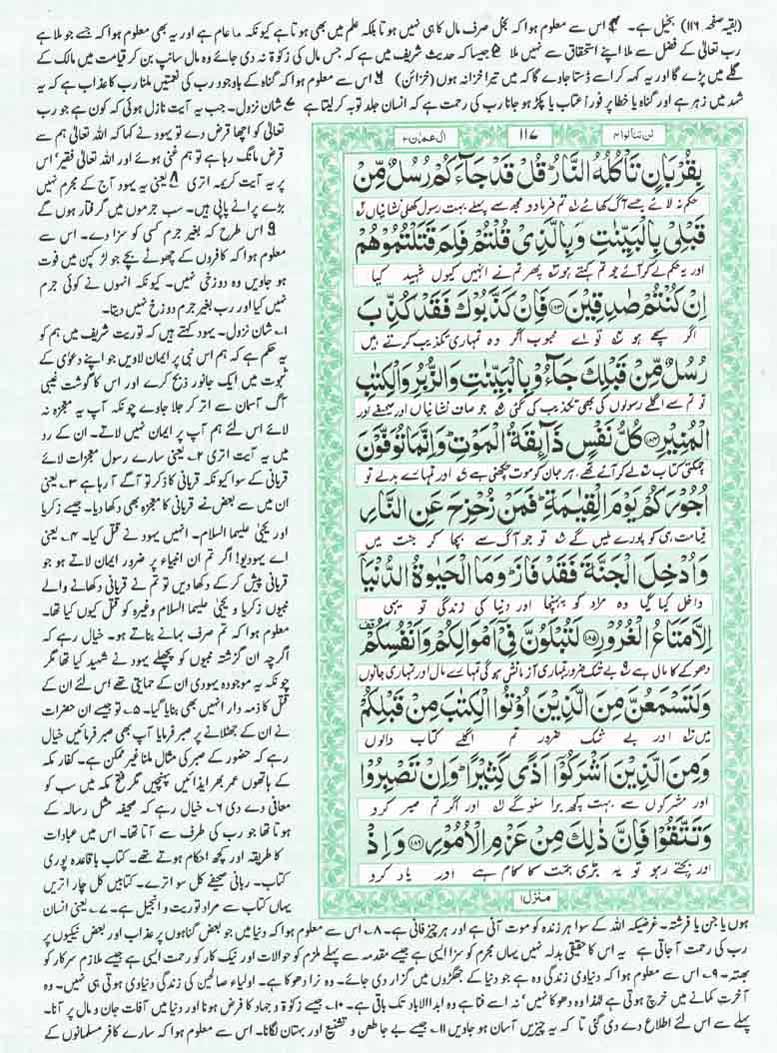 (بقیہ صفحہ ۱۱۶) بخیل ہے۔ ۴ اس سے معلوم ہوا کہ بخل صرف مال کا ہی نہیں ہوتا بلکہ علم میں بھی ہوتا ہے کیونکہ ما عام ہے اور یہ بھی معلوم ہوا کہ جسے جو ملا ہے
رب تعالیٰ کے فضل سے ملا اپنے استحقاق سے نہیں ملا ۵ جیسا کہ حدیث شریف میں ہے کہ جس مال کی زکوٰۃ نہ دی جائے وہ مال سانپ بن کر قیامت میں مالک کے
گلے میں پڑے گا اور یہ کہہ کر اسے ڈستا جاوے گا کہ میں تیرا خزانہ ہوں (خزائن) ۶ اس سے معلوم ہوا کہ گناہ کے باوجود رب کی نعمتیں ملنا رب کا عذاب ہے کہ یہ
شہد میں زہر ہے اور گناہ یا خطا پر فوراً عتاب یا پکڑ ہو جانا رب کی رحمت ہے کہ انسان جلد توبہ کر لیتا ہے ۷ شان نزول۔ جب یہ آیت نازل ہوئی کہ کون ہے جو رب
تعالیٰ کو اچھا قرض دے تو یہود نے کہا کہ اللہ تعالیٰ ہم سے
قرض مانگ رہا ہے تو ہم غنی ہوئے اور اللہ تعالیٰ فقیر' اس
پر یہ آیت کریمہ اتری ۸ یعنی یہ یہود آج کے مجرم نہیں
بڑے پرانے پاپی ہیں۔ سب جرموں میں گرفتار ہوں گے
۹ اس طرح کہ بغیر جرم کسی کو سزا دے۔ اس سے
معلوم ہوا کہ کافروں کے چھوٹے بچے جو لڑکپن میں فوت
ہو جاویں وہ دوزخی نہیں۔ کیونکہ انہوں نے کوئی جرم
نہیں کیا اور رب بغیر جرم دوزخ نہیں دیتا۔
۱۔ شان نزول۔ یہود کہتے ہیں کہ توریت شریف میں ہم کو
یہ حکم ہے کہ ہم اس نبی پر ایمان لاویں جو اپنے دعویٰ کے
ثبوت میں ایک جانور ذبح کرے اور اس کا گوشت غیبی
آگ آسمان سے اتر کر جلا جاوے چونکہ آپ یہ معجزہ نہ
لائے اس لئے ہم آپ پر ایمان نہیں لاتے۔ ان کے رد
میں یہ آیت اتری ۲۔ یعنی سارے رسول معجزات لائے
قربانی کے سوا کیونکہ قربانی کا ذکر تو آگے آ رہا ہے ۳۔ یعنی
ان میں سے بعض نے قربانی کا معجزہ بھی دکھا دیا۔ جیسے زکریا
اور یحییٰ علیہما السلام۔ انہیں یہود نے قتل کیا۔ ۴۔ یعنی
اے یہودیو! اگر تم ان انبیاء پر ضرور ایمان لاتے ہو جو
قربانی پیش کر کے دکھا دیں تو تم نے قربانی دکھانے والے
نبیوں زکریا و یحییٰ علیہما السلام وغیرہ کو قتل کیوں کیا تھا۔
معلوم ہوا کہ تم صرف بہانے بناتے ہو۔ خیال رہے کہ
اگرچہ ان گزشتہ نبیوں کو پچھلے یہود نے شہید کیا تھا مگر
چونکہ یہ موجودہ یہودی ان کے حمایتی تھے اس لئے ان کے
قتل کا ذمہ دار انہیں بھی بنایا گیا۔ ۵۔ تو جیسے ان حضرات
نے ان کے جھٹلانے پر صبر فرمایا آپ بھی صبر فرمائیں خیال
رہے کہ حضور کے صبر کی مثال ملنا غیر ممکن ہے۔ کفار مکہ
کے ہاتھوں عمر بھر ایذائیں پہنچیں مگر فتح مکہ میں سب کو
معافی دے دی ۶۔ خیال رہے کہ صحیفہ مثل رسالہ کے
ہوتا تھا جو رب کی طرف سے آتا تھا۔ اس میں عبادات
کا طریقہ اور کچھ احکام ہوتے تھے۔ کتاب باقاعدہ پوری
کتاب۔ ربانی صحیفے کل سو اترے۔ کتابیں کل چار اتریں
یہاں کتاب سے مراد توریت و انجیل ہے۔ ۷۔ یعنی انسان
لن تنالوا ۴
۱۱۷
اٰل عمرٰن ۳
بِقُرْبَانٍ تَاْكُلُهُ النَّارُ ؕ قُلْ قَدْ جَآءَكُمْ رُسُلٌ مِّنْ
حکم نہ لائے جسے آگ کھائے تم فرما دو مجھ سے پہلے بہت رسول کھلی نشانیاں
قَبْلِیْ بِالْبَیِّنٰتِ وَبِالَّذِیْ قُلْتُمْ فَلِمَ قَتَلْتُمُوْهُمْ
اور یہ حکم لے کر آئے جو تم کہتے ہو پھر تم نے انہیں کیوں شہید کیا
اِنْ كُنْتُمْ صٰدِقِیْنَ ﴿۱۸۳﴾ فَاِنْ كَذَّبُوْكَ فَقَدْ كُذِّبَ
اگر سچے ہو تو اے محبوب اگر وہ تمہاری تکذیب کرتے ہیں
رُسُلٌ مِّنْ قَبْلِكَ جَآءُوْ بِالْبَیِّنٰتِ وَالزُّبُرِ وَالْكِتٰبِ
تو تم سے اگلے رسولوں کی بھی تکذیب کی گئی جو صاف نشانیاں اور صحیفے اور
الْمُنِیْرِ ﴿۱۸۴﴾ كُلُّ نَفْسٍ ذَآىِٕقَةُ الْمَوْتِ ؕ وَاِنَّمَا تُوَفَّوْنَ
چمکتی کتاب لے کر آئے تھے ہر جان کو موت چکھنی ہے اور تمہارے بدلے تو
اُجُوْرَكُمْ یَوْمَ الْقِیٰمَةِ ؕ فَمَنْ زُحْزِحَ عَنِ النَّارِ
قیامت ہی کو پورے ملیں گے تو جو آگ سے بچا کر جنت میں
وَاُدْخِلَ الْجَنَّةَ فَقَدْ فَازَ ؕ وَمَا الْحَیٰوةُ الدُّنْیَاۤ
داخل کیا گیا وہ مراد کو پہنچا اور دنیا کی زندگی تو یہی
اِلَّا مَتَاعُ الْغُرُوْرِ ﴿۱۸۵﴾ لَتُبْلَوُنَّ فِیْۤ اَمْوَالِكُمْ وَاَنْفُسِكُمْ
دھوکے کا مال ہے بے شک ضرور تمہاری آزمائش ہوگی تمہارے مال اور تمہاری جانوں
وَلَتَسْمَعُنَّ مِنَ الَّذِیْنَ اُوْتُوا الْكِتٰبَ مِنْ قَبْلِكُمْ
میں اور بے شک ضرور تم اگلے کتاب والوں
وَمِنَ الَّذِیْنَ اَشْرَكُوْۤا اَذًى كَثِیْرًا ؕ وَاِنْ تَصْبِرُوْا
اور مشرکوں سے بہت کچھ برا سنو گے اور اگر تم صبر کرو
وَتَتَّقُوْا فَاِنَّ ذٰلِكَ مِنْ عَزْمِ الْاُمُوْرِ ﴿۱۸۶﴾ وَاِذْ
اور بچتے رہو تو یہ بڑی ہمت کا کام ہے اور یاد کرو
منزل ۱
ہوں یا جن یا فرشتہ۔ غرضیکہ اللہ کے سوا ہر زندہ کو موت آنی ہے اور ہر چیز فانی ہے۔ ۸۔ اس سے معلوم ہوا کہ دنیا میں جو بعض گناہوں پر عذاب اور بعض نیکیوں پر
رب کی رحمت آ جاتی ہے یہ اس کا حقیقی بدلہ نہیں یہاں مجرم کو سزا ایسی ہے جیسے مقدمہ سے پہلے ملزم کو حوالات اور نیک کار کو رحمت ایسی ہے جیسے ملازم سرکار کو
بھتہ۔ ۹۔ اس سے معلوم ہوا کہ دنیاوی زندگی وہ ہے جو دنیا کے جھگڑوں میں گزار دی جائے۔ وہ نرا دھوکا ہے۔ اولیاء صالحین کی زندگی دنیاوی ہوتی ہی نہیں۔ وہ
آخرت کمانے میں خرچ ہوتی ہے لہٰذا وہ دھوکا نہیں' نہ اسے فنا ہے وہ ابدالاباد تک باقی ہے۔ ۱۰۔ جیسے زکوٰۃ و جہاد کا فرض ہونا اور دنیا میں آفات جان و مال پر آنا۔
پہلے سے اس لئے اطلاع دے دی گئی تا کہ یہ چیزیں آسان ہو جاویں ۱۱۔ جیسے بے جا طعن و تشنیع اور بہتان لگانا۔ اس سے معلوم ہوا کہ سارے کافر مسلمانوں کے